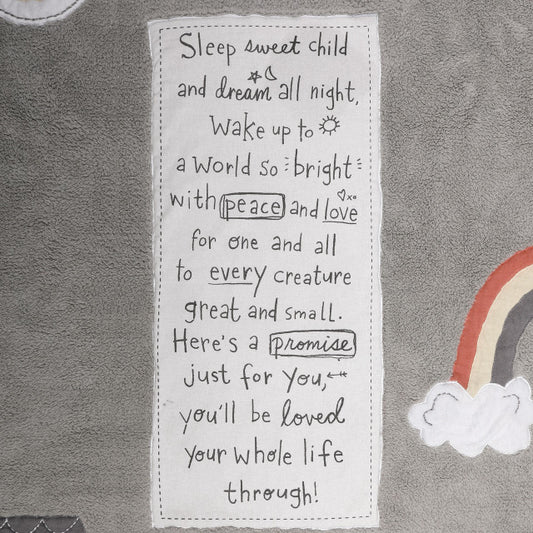 Sleep sweet child
and dream all night,
Wake up to
a World so bright
with peace and love
for one and all
to every creature
great and small.
Here's a promise
just for you,
you'll be loved
your whole life
through!